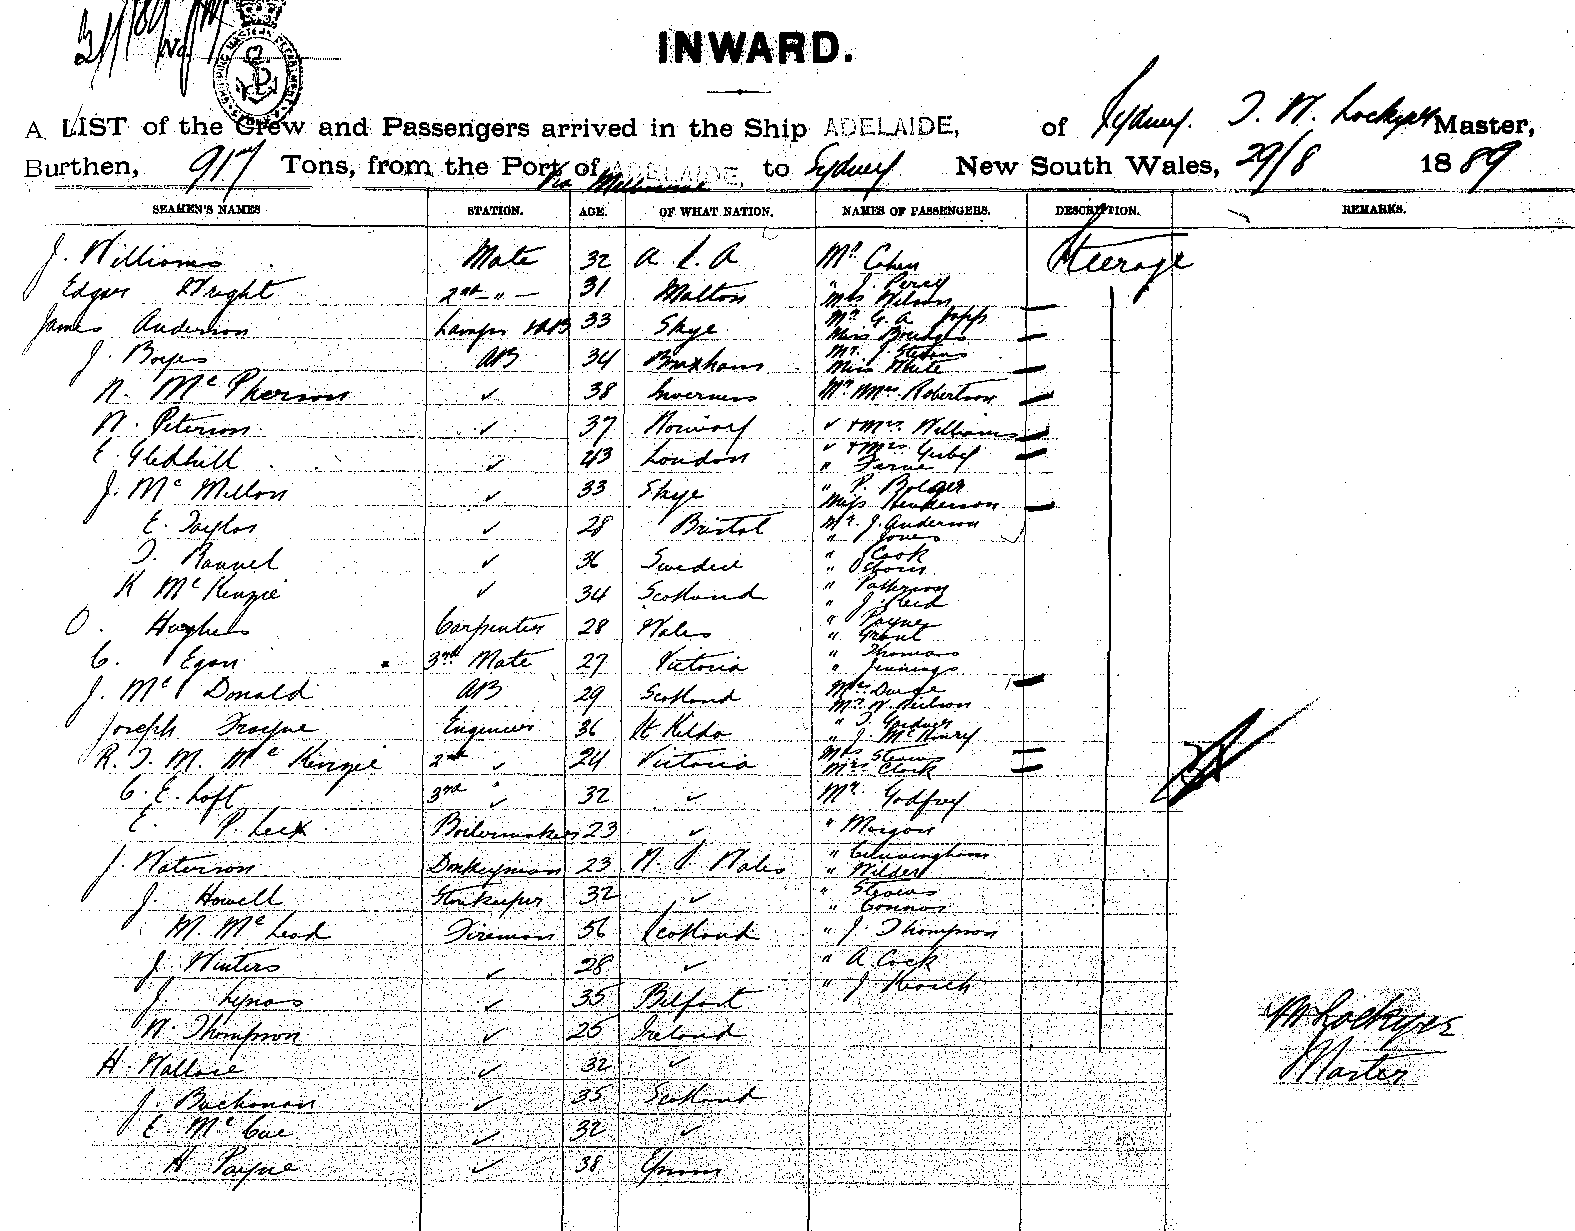 INWARD.
A LIST of the Crew and Passengers arrived in the Ship ADELAIDE, of Sydney. T. W. Lockyer Master,
Burthen, 917 Tons, from the Port of ADELAIDE, Via Melbourne to Sydney New South Wales, 29/8 1889
SEAMEN'S NAMES STATION. AGE. OF WHAT NATION. NAMES OF PASSENGERS. DESCRIPTION. REMARKS.
J. Williams Mate 32 Mr Cohen Steerage
Edgar Wright 2nd " 31 Malton " J. Percy
Mrs Wilson
James Anderson Lamps 33 Skye Mr G. A. Jopp
Miss Bridges
J. Boyes AB 34 Brixham Mr. J. Stevens
Miss White
N. McPherson ✓ 38 Inverness Mr Mrs Robertson
N. Peterson ✓ 37 Norway ✓ + Mrs. Williams
E. Gledhill ✓ 43 London ✓ + Mrs
"
J. McMillan ✓ 33 Skye " P. Bolger
Miss Henderson
E. Taylor ✓ 28 Bristol Mr. J. Anderson
" Jones
✓ 36 Sweden " Cook
"
K McKenzie ✓ 34 Scotland " Patterson
" J. Reid
O. Hughes Carpenter 28 Wales " Payne
" Grant
C. Egan 3rd Mate 27 Victoria " Thomas
" Jennings
J. McDonald AB 29 Scotland Mrs
Mr. W. Neilson
Joseph Engineer 36 St Kilda " T Gardner
" J. McHenry
R. T. M. McKenzie 2nd ✓ 24 Victoria Mrs
Mrs Clark
C. E. Loft 3rd " ✓ 32 ✓ Mr. Godfrey
E. P. Boilermaker 23 ✓ " Morgan
" Cunningham
J. Waterson Donkeyman 23 N. S. Wales " Wilder
J. Howell Storekeeper 32 ✓ " Stevens
" Connor
M. McLeod Fireman 56 Scotland " J. Thompson
J. Winters ✓ 28 ✓ " A Cock
J. Lynas ✓ 35 Belfast " J
W. Thompson ✓ 25 Ireland
H. Wallace ✓ 32 ✓
J. Buchanan ✓ 35 Scotland
E McCue ✓ 32 ✓
H Payne ✓ 38
W Lockyer
Master